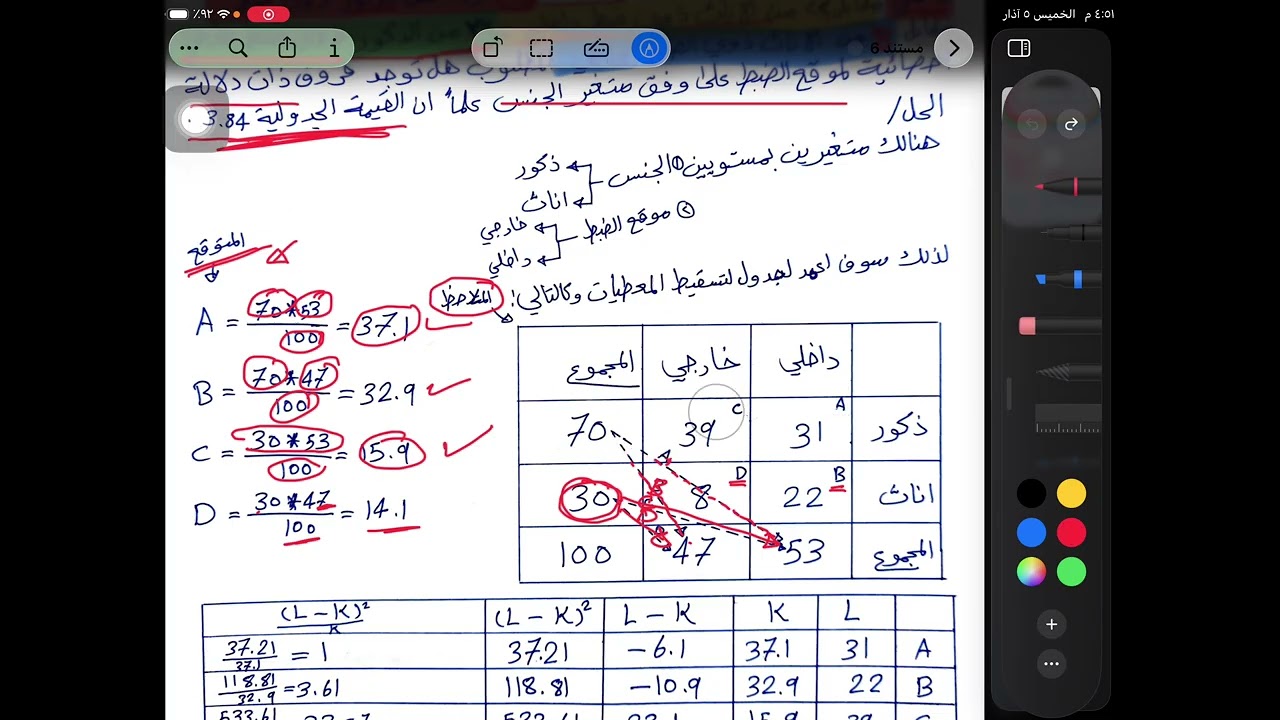 ٪٩٢
٤:٥١ م الخميس ٥ آذار
مستند 6
المطلوب هل توجد فروق ذات دلالة
احصائية لموقع الضبط على وفق متغير الجنس علماً ان القيمة الجدولية 3.84 .
الحل/
هنالك متغيرين بمستويين ① الجنس
ذكور
اناث
② موقع الضبط
خارجي
داخلي
لذلك سوف اعمد لجدول لتسقيط المعطيات وكالتالي:
الملاحظ
المتوقع
A = 70*53 / 100 = 37.1
B = 70*47 / 100 = 32.9
C = 30*53 / 100 = 15.9
D = 30*47 / 100 = 14.1
داخلي خارجي المجموع
ذكور 31 A 39 C 70
اناث 22 B 8 D 30
المجموع 53 47 100
(L-K)²/K (L-K)² L-K K L
37.21/37.1 = 1 37.21 -6.1 37.1 31 A
118.81/32.9 = 3.61 118.81 -10.9 32.9 22 B
533.61